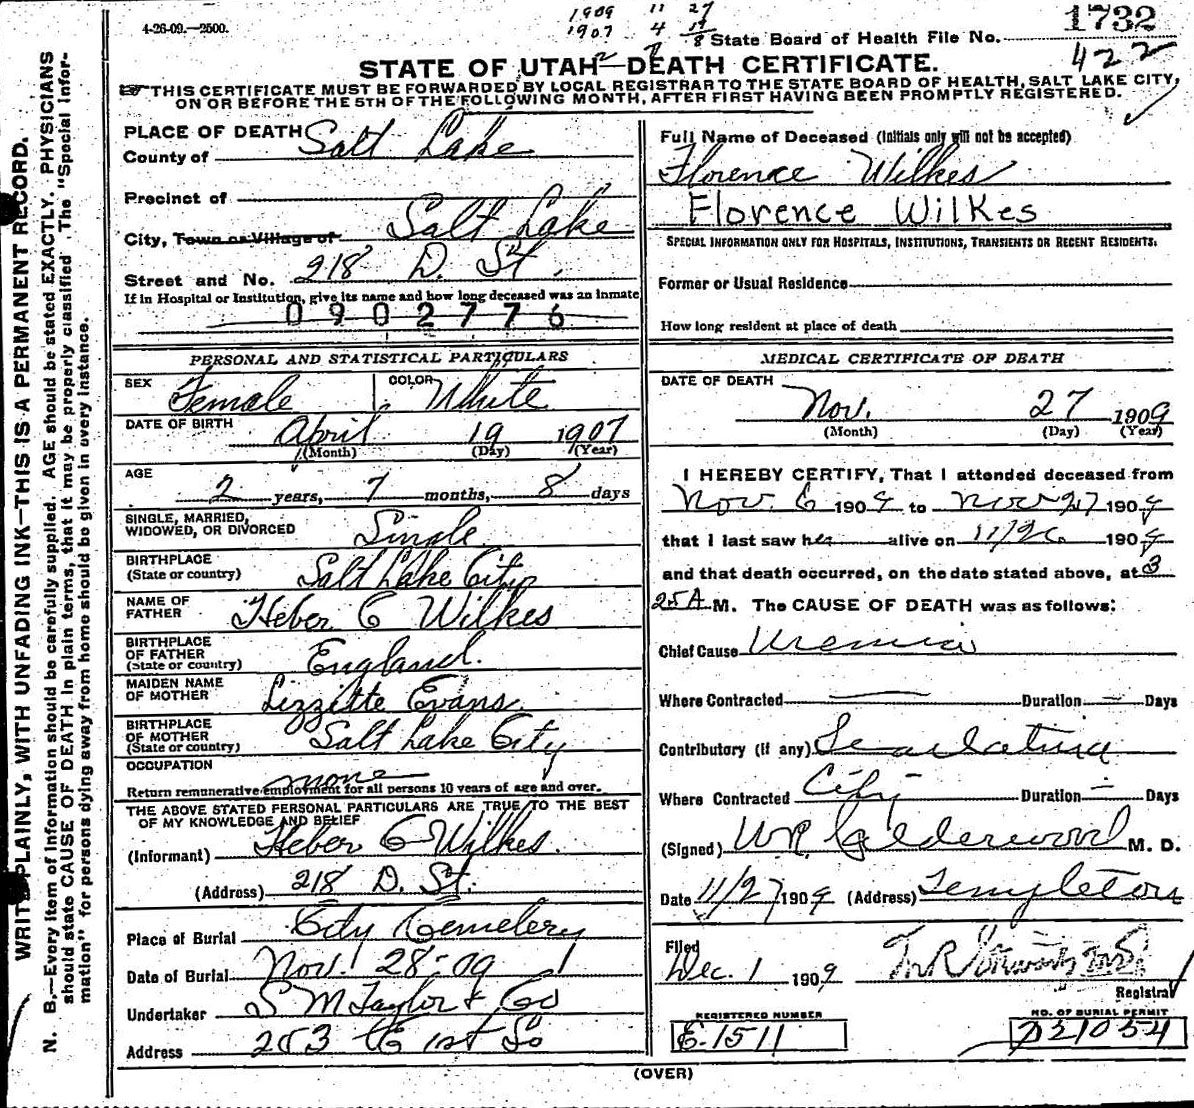 4-26-09.—2500.
1909 11 27
1907 4 19
2 7 8
State Board of Health File No. 1732
422
STATE OF UTAH—DEATH CERTIFICATE.
THIS CERTIFICATE MUST BE FORWARDED BY LOCAL REGISTRAR TO THE STATE BOARD OF HEALTH, SALT LAKE CITY,
ON OR BEFORE THE 5TH OF THE FOLLOWING MONTH, AFTER FIRST HAVING BEEN PROMPTLY REGISTERED.
WRITE PLAINLY, WITH UNFADING INK—THIS IS A PERMANENT RECORD.
N. B.—Every item of Information should be carefully supplied. AGE should be stated EXACTLY. PHYSICIANS
should state CAUSE OF DEATH in plain terms, that it may be properly classified. The "Special Infor-
mation" for persons dying away from home should be given in every instance.
PLACE OF DEATH
County of Salt Lake
Precinct of
City, Town or Village of Salt Lake
Street and No. 218 D. St.
If in Hospital or Institution, give its name and how long deceased was an inmate
0902776
PERSONAL AND STATISTICAL PARTICULARS
SEX Female COLOR White
DATE OF BIRTH April 19 1907
(Month) (Day) (Year)
AGE
2 years, 7 months, 8 days
SINGLE, MARRIED,
WIDOWED, OR DIVORCED Single
BIRTHPLACE
(State or country) Salt Lake City
NAME OF
FATHER Heber C Wilkes
BIRTHPLACE
OF FATHER
(State or country) England.
MAIDEN NAME
OF MOTHER Lizzitte Evans
BIRTHPLACE
OF MOTHER
(State or country) Salt Lake City
OCCUPATION none
Return remunerative employment for all persons 10 years of age and over.
THE ABOVE STATED PERSONAL PARTICULARS ARE TRUE TO THE BEST
OF MY KNOWLEDGE AND BELIEF
(Informant) Heber C Wilkes.
(Address) 218 D. St.
Place of Burial City Cemetery
Date of Burial Nov. 28-09
Undertaker S M Taylor & Co
Address 253 E 1st So
Full Name of Deceased (Initials only will not be accepted)
Florence Wilkes
Florence Wilkes
SPECIAL INFORMATION ONLY FOR HOSPITALS, INSTITUTIONS, TRANSIENTS OR RECENT RESIDENTS.
Former or Usual Residence
How long resident at place of death
MEDICAL CERTIFICATE OF DEATH
DATE OF DEATH
Nov. 27 1909
(Month) (Day) (Year)
I HEREBY CERTIFY, That I attended deceased from
Nov. 6 1909 to Nov 27 1909
that I last saw her alive on 11/26 1909
and that death occurred, on the date stated above, at 3
25 A M. The CAUSE OF DEATH was as follows:
Chief Cause Uremia
Where Contracted — Duration — Days
Contributory (if any) Scarlatina
Where Contracted City Duration — Days
(Signed) W.R. Calderwood M. D.
Date 11/27 1909 (Address) Templeton
Filed
Dec. 1 1909
Registrar
REGISTERED NUMBER
E-1511
NO. OF BURIAL PERMIT
D21054
(OVER)